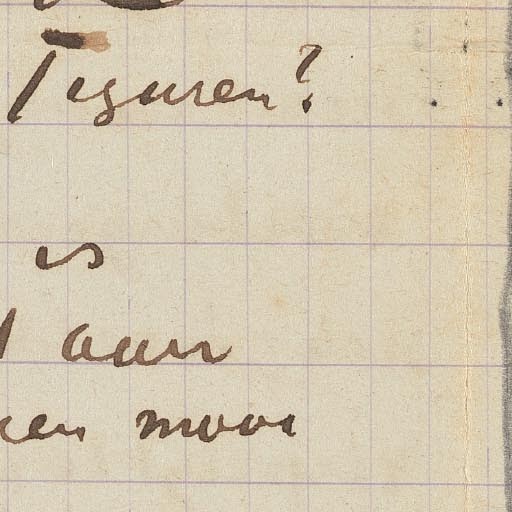 Figuren?
is
aan
en mooi